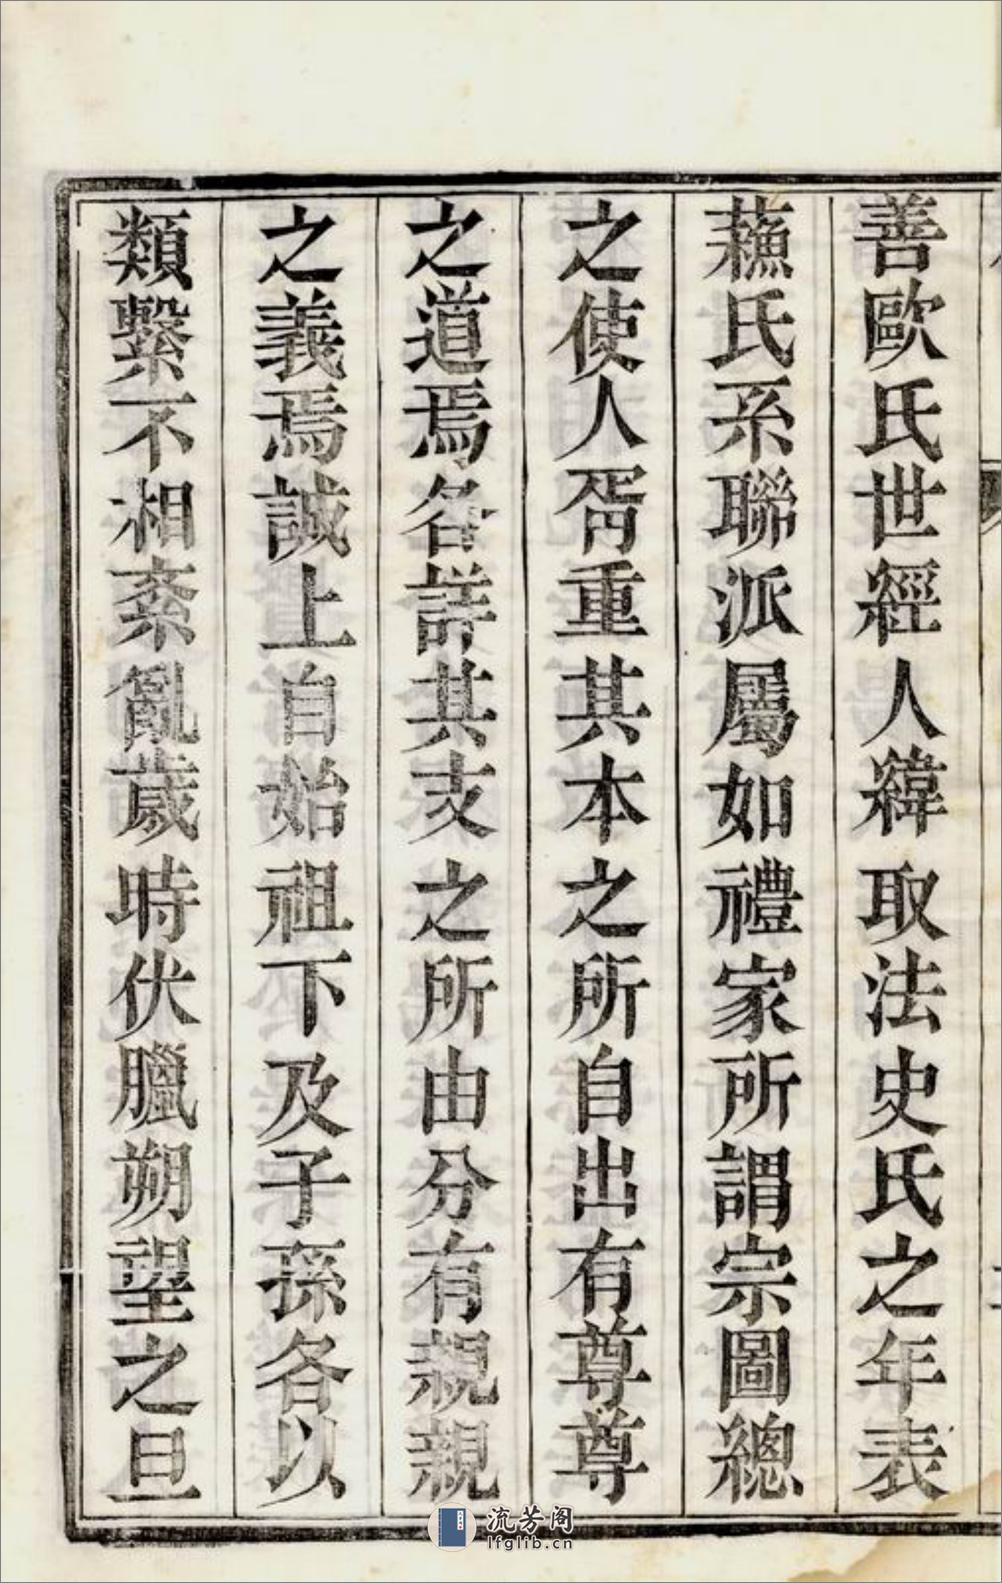 善歐氏世經人緯取法史氏之年表
蘓氏系聯派屬如禮家所謂宗圖總
之使人胥重其本之所自出有尊尊
之道焉各詳其支之所由分有親親
之義焉誠上自始祖下及子孫各以
類繫不相紊亂歲時伏臘朔望之旦
流芳阁
lfglib.cn